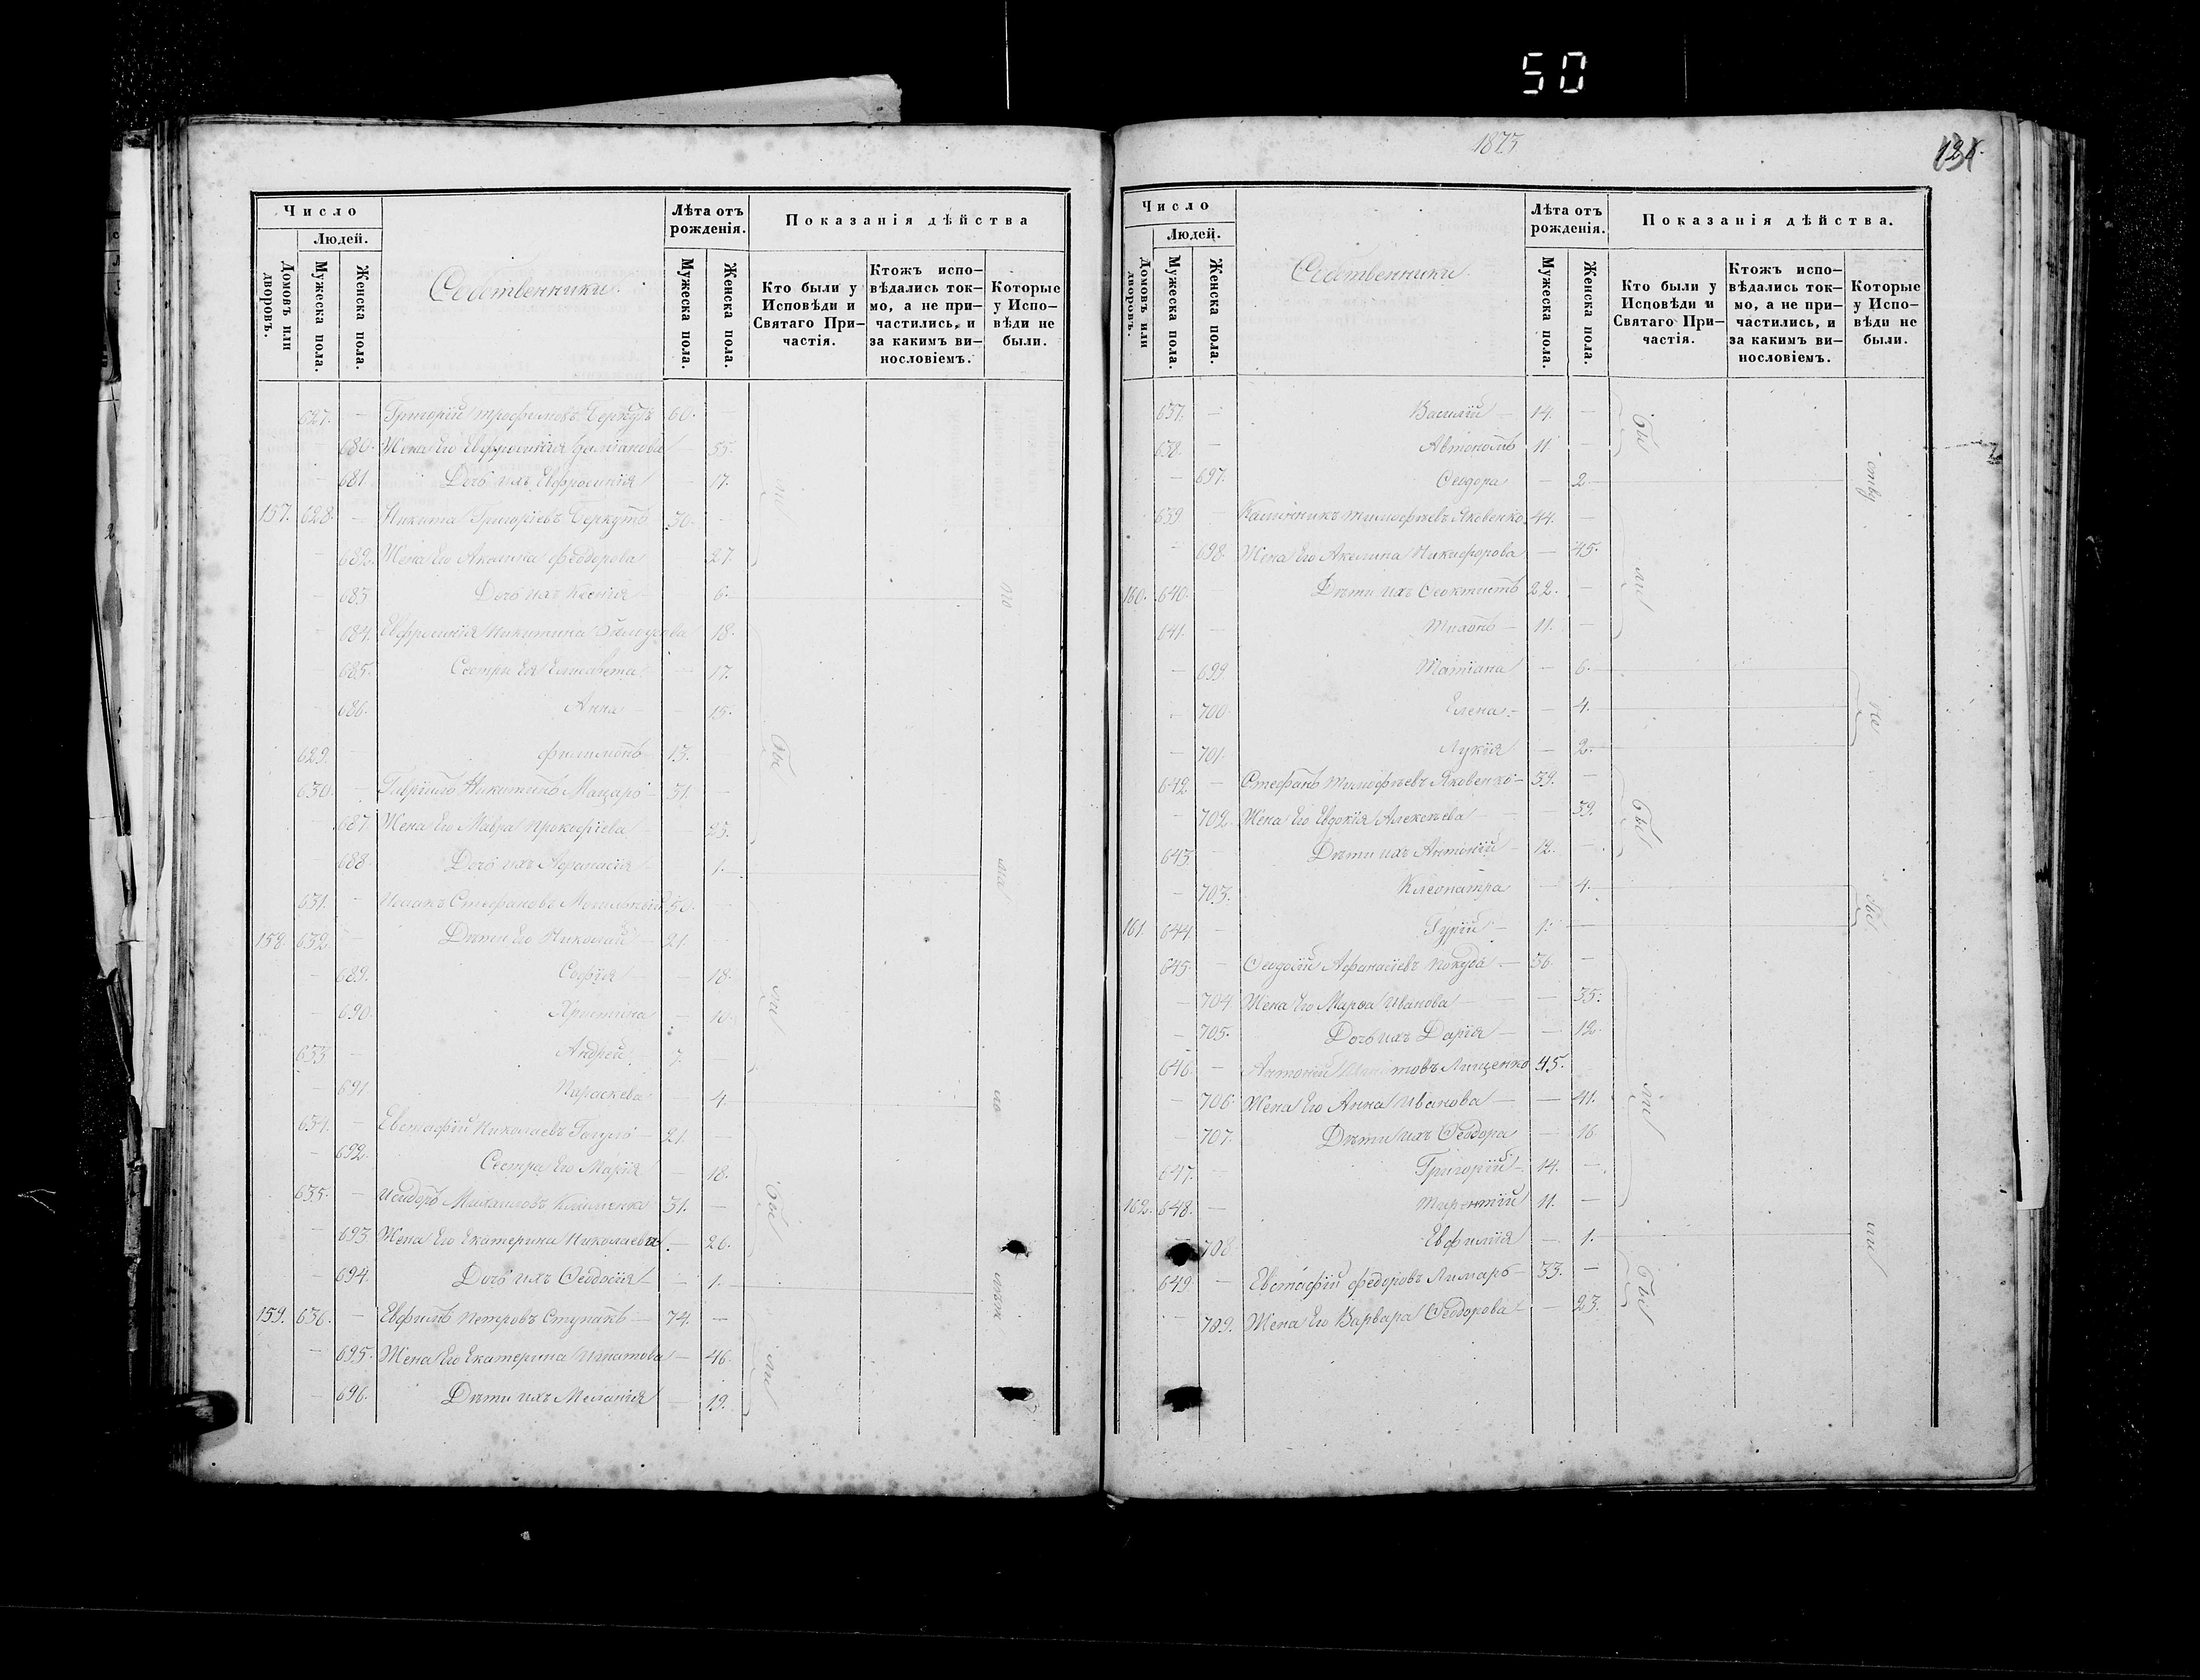 50
Число
Людей.
Домовъ или дворовъ.
Мужеска пола.
Женска пола.
Собственники.
Лѣта отъ рожденія.
Мужеска пола.
Женска пола.
Показанія дѣйства
Кто были у Исповѣди и Святаго Причастія.
Ктожъ исповѣдались токмо, а не причастились, и за какимъ винословіемъ.
Которые у Исповѣди не были.
627. — Григорій Трофимовъ Беркутъ 60.
— 680. Жена Его Евфросинія — 55.
— 681. Дочь ихъ Евфросинія — 17.
157. 628. — Никита Григоріевъ Беркутъ 30. —
— 682. Жена Его Акилина Феодорова 27.
— 683. Дочь ихъ Ксенія — 6.
— 684. Евфросинія Никитина 18.
— 685. Сестри Ея Елисавета — 17.
— 686. Анна — — 15.
629. — Филимонъ 13. —
630. — Гавріилъ Никитинъ Мацаро — 31. —
— 687. Жена Его Мавра Прокофіева — 25.
— 688. Дочь ихъ Афанасія 1.
631. — Исаакъ Стефановъ 50. —
158. 632. — Дѣти Его Николай — 21.
— 689. Софія — — 18.
— 690. Христина — 10.
633. — Андрей 7. —
— 691. Параскева — 4.
634. — Евстафій Николаевъ — 21. —
— 692. Сестра Его Марія — 18.
635. — Исидоръ Михаиловъ 31. —
— 693. Жена Его Екатерина Николаева — 26.
— 694. Дочь ихъ Ѳеодосія — — 1.
159. 636. — Евфимъ Петровъ Ступакъ — 74. —
— 695. Жена Его Екатерина Игнатова — 46.
— 696. Дѣти ихъ Меланія — 19.
1875
Число
Людей.
Домовъ или дворовъ.
Мужеска пола.
Женска пола.
Собственники.
Лѣта отъ рожденія.
Мужеска пола.
Женска пола.
Показанія дѣйства.
Кто были у Исповѣди и Святаго Причастія.
Ктожъ исповѣдались токмо, а не причастились, и за какимъ винословіемъ.
Которые у Исповѣди не были.
637. — Василій — 14. —
638. — Автономъ 11. —
— 697. Ѳеодора — 2.
639 — Калинникъ Тимофѣевъ Яковенко 44. —
— 698. Жена Его Акилина Никифорова — 45.
160. 640. — Дѣти ихъ Ѳеоктистъ 22. —
641. — Тихонъ — 11. —
— 699. Татіана — 6.
— 700. Елена — — 4.
— 701. Лукія — 2.
642. — Стефанъ Тимофѣевъ Яковенко — 39. —
— 702. Жена Его Евдокія Алексѣева — — 39.
643. — Дѣти ихъ Антоній — 12. —
— 703. Клеопатра — 4.
161. 644. — Гурій — 1. —
645. — Ѳеодосій Афанасіевъ Покуда — 36. —
— 704 Жена Его Марѳа Иванова — — 35.
— 705. Дочь ихъ Дарія — — 12.
646. — Антоній Лищенко 45.
— 706. Жена Его Анна Иванова — — 41.
— 707. Дѣти ихъ Ѳеодора — 16
647. — Григорій — 14. —
162. 648. — Терентій 11. —
708. Евфимія — 1.
649. — Евстафій Федоровъ Лимарь — 33. —
— 709. Жена Его Варвара Ѳеодорова — 23.